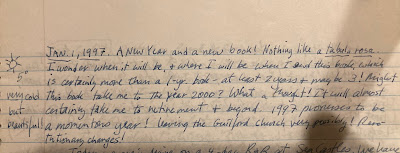 JAN. 1, 1997. A New Year and a new book! Nothing like a tabula rosa.
I wonder when it will be, & where I will be when I end this book, which
is certainly more than a 1-yr. book - at least 2 years & maybe 3! Might
5"
very cold this book take me to the year 2000? What a thought! It will almost
but certainly take me to retirement & beyond. 1997 promises to be
beautiful a momentous year! leaving the Guilford church very possibly! Revo-
lutionary changes!
at
we leave